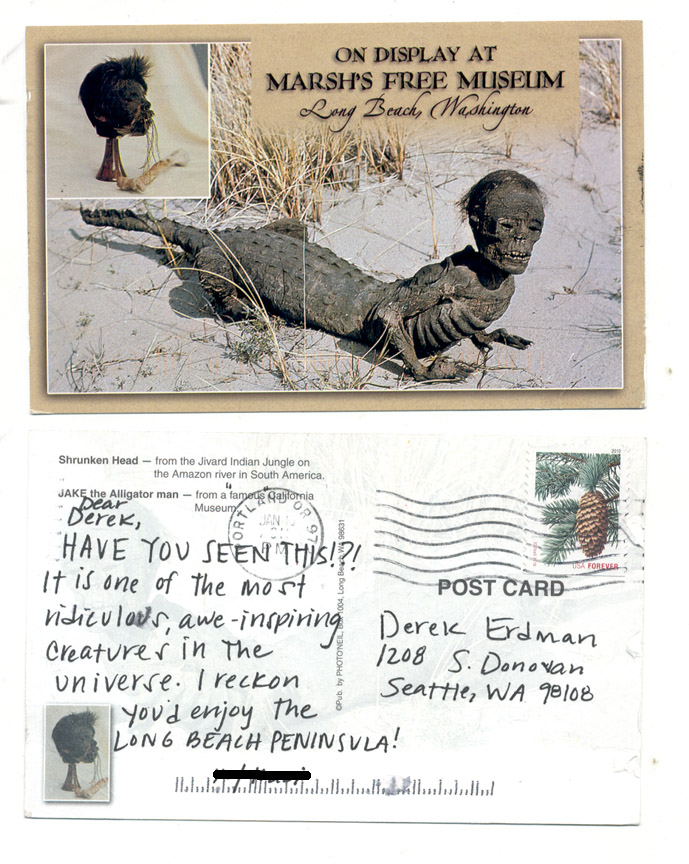 ON DISPLAY AT
MARSH'S FREE MUSEUM
Long Beach, Washington
Shrunken Head — from the Jivard Indian Jungle on
the Amazon river in South America.
JAKE the Alligator man — from a "famous" California
Museum
Dear
Derek,
HAVE YOU SEEN THIS!?!
It is one of the most
ridiculous, awe-inspiring
creatures in the
universe. I reckon
you'd enjoy the
LONG BEACH PENINSULA!
PORTLAND OR 97
JAN
©Pub. by PHOTO'NEIL, Box 1004, Long Beach, WA 98631
2010
USA FOREVER
POST CARD
Derek Erdman
1208 S. Donovan
Seattle, WA 98108